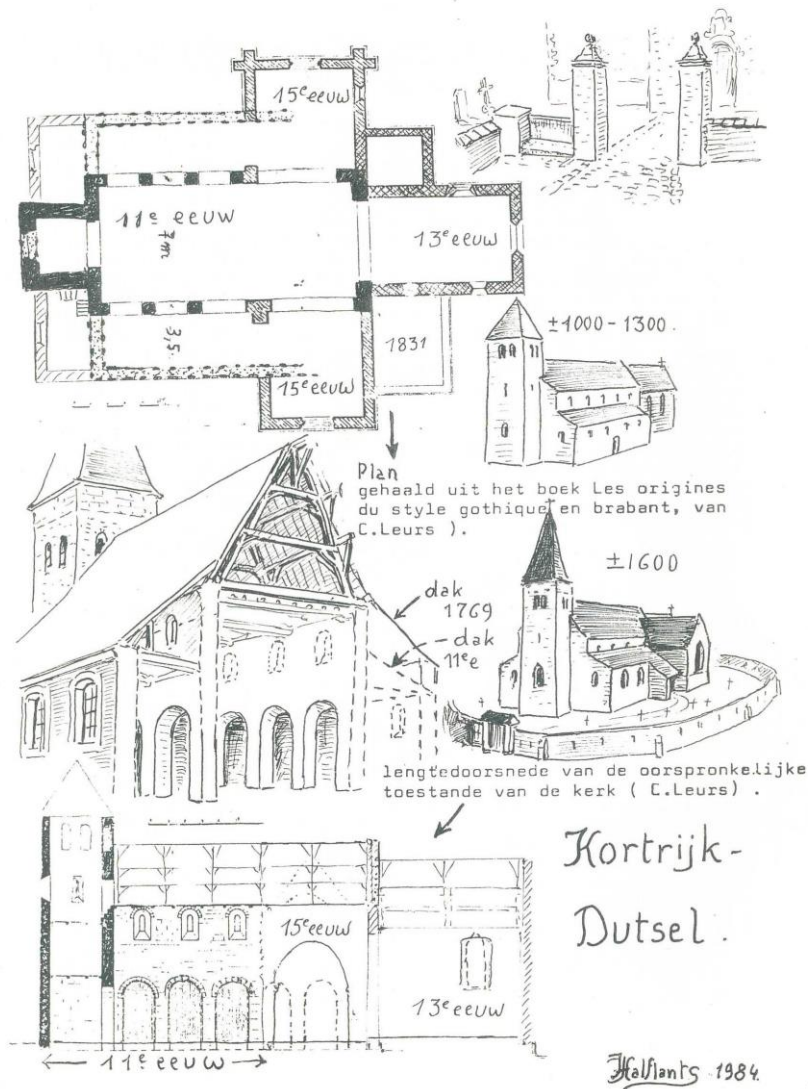 15e eeuw
11e eeuw
7m
13e eeuw
3,5
1831
15e eeuw
±1000-1300.
Plan
( gehaald uit het boek Les origines
du style gothique en brabant, van
C.Leurs ).
±1600
dak
1769
dak
11e e
lengtedoorsnede van de oorspronkelijke
toestande van de kerk ( C.Leurs) .
Kortrijk-
Dutsel.
15e eeuw
13e eeuw
11e eeuw
Halflants 1984.